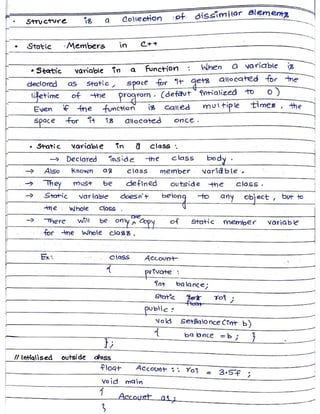 • Structure is a Collection of dissimilar elements
• Static Members in C++
• Static variable in a Function : When a variable is
declared as static, space for it gets allocated for the
lifetime of the program. (default Initialized to 0)
Even if the function is called multiple times, the
space for it is allocated once.
• Static variable in a class :
→ Declared inside the class body.
→ Also known as class member variable.
→ They must be defined outside the class.
→ Static variable doesn't belong to any object, but to
the whole class.
→ There will be only one copy of static member variable
for the whole class.
Ex: class Account
{
private :
int balance;
static float roi ;
public :
void setBalance (int b)
{ balance = b ; }
};
// Initialised outside class
float Account :: roi = 3.5f ;
void main
{
Account a1;
}